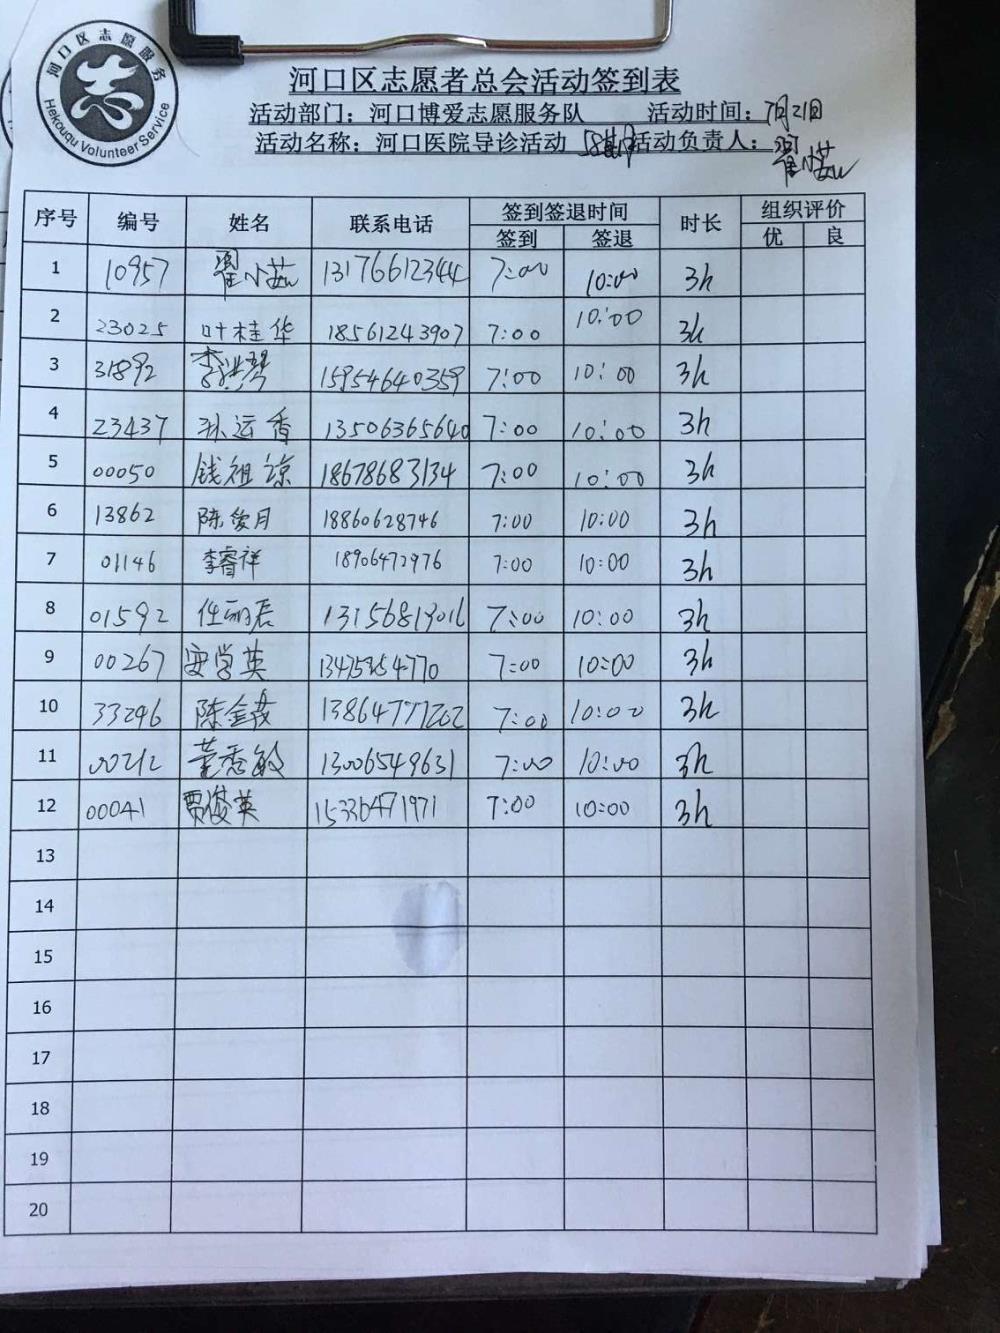 河口区志愿服务
志
Hekouqu Volunteer Service
河口区志愿者总会活动签到表
活动部门：河口博爱志愿服务队 活动时间：7月21日
活动名称：河口医院导诊活动 58 活动负责人：翟小茹
序号 编号 姓名 联系电话 签到签退时间 时长 组织评价
签到 签退 优 良
1 10957 翟小茹 13176612344 7:00 10:00 3h
2 23025 叶桂华 18561243907 7:00 10:00 3h
3 31892 李洪琴 15954640359 7:00 10:00 3h
4 23437 孙运香 13506365640 7:00 10:00 3h
5 00050 钱祖凉 18678683134 7:00 10:00 3h
6 13862 陈俊月 18860628746 7:00 10:00 3h
7 01146 李睿祥 18906472976 7:00 10:00 3h
8 01592 任丽辰 13156819016 7:00 10:00 3h
9 00267 安学英 13475354770 7:00 10:00 3h
10 33296 陈金茂 13864777262 7:00 10:00 3h
11 00212 董秀敏 13006549631 7:00 10:00 3h
12 00041 贾俊英 15326471971 7:00 10:00 3h
13
14
15
16
17
18
19
20